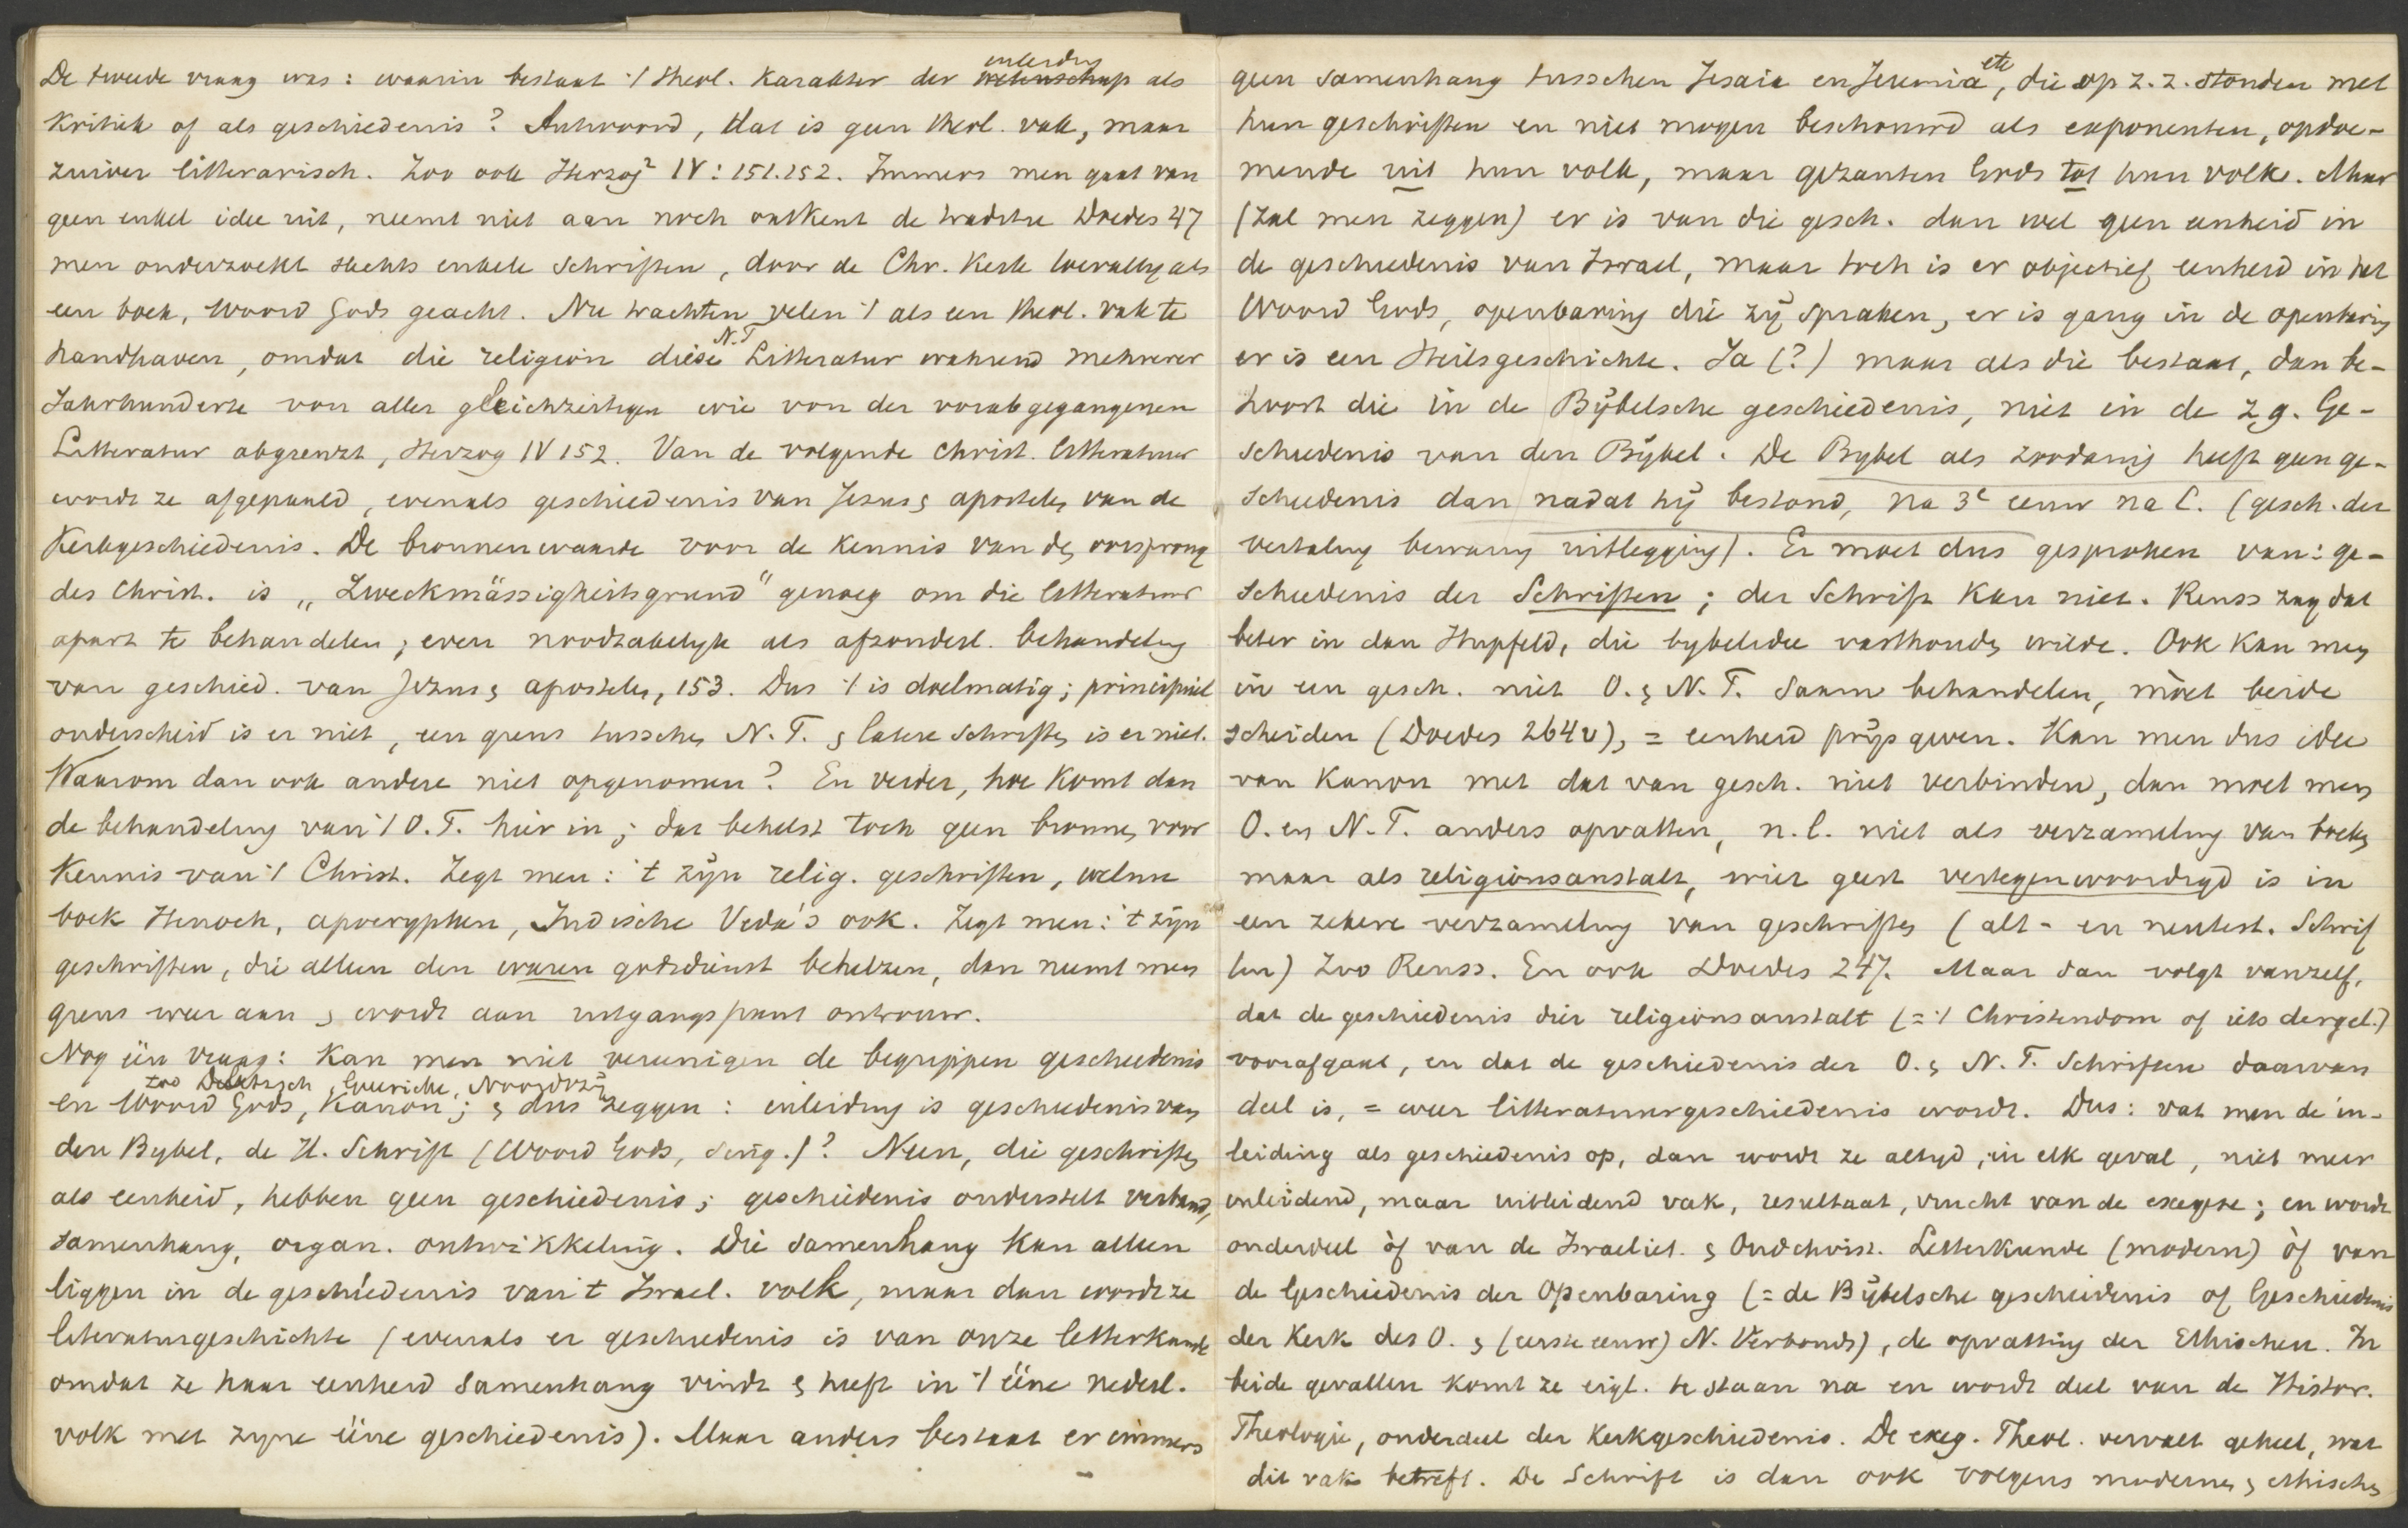 De tweede vraag was: waarin bestaat 't theol. karakter der inleiding wetenschap als
kritiek of als geschiedenis? Antwoord, dat is geen theol. vak, maar
zuiver litterarisch. Zoo ook Herzog² IV: 151.152. Immers men gaat van
geen enkel idee uit, neemt niet aan noch ontkent de traditie Doedes 47
men onderzoekt slechts enkele schriften, door de Chr. Kerk toevallig als
een boek, woord Gods geacht. Nu trachten velen 't als een theol. vak te
handhaven, omdat die religion diese N.T Litteratur während mehrerer
Jahrhunderte von aller gleichzeitigen wie von der vorabgegangenen
Litteratur abgrenzt, Herzog IV 152. Van de volgende christ. litteratuur
wordt ze afgepaald, evenals geschiedenis van Jezus & apostelen van de
Kerkgeschiedenis. De bronnenwaarde voor de kennis van den oorsprong
des Christ. is „Zweckmässigkeitsgrund" genoeg om die litteratuur
apart te behandelen; even noodzakelyk als afzonderl. behandeling
van geschied. van Jezus & apostelen, 153. Dus 't is doelmatig; principieel
onderscheid is er niet, een grens tusschen N.T. & latere schriften is er niet.
Waarom dan ook andere niet opgenomen? En verder, hoe komt dan
de behandeling van 't O.T. hier in; dat behelst toch geen bronnen voor
kennis van 't Christ. Zegt men: 't zijn relig. geschriften, welnu
boek Henoch, apocryphen, Indische Veda's ook. Zegt men: 't zijn
geschriften, die alleen den waren godsdienst behelzen, dan neemt men
grens weer aan & wordt aan uitgangspunt ontrouw.
Nog één vraag: kan men niet vereenigen de begrippen geschiedenis
zoo Delitzsch, Guericke, Noordtzij
en Woord Gods, Kanon; & dus zeggen: inleiding is geschiedenis van
den Bybel, de H. Schrift (Woord Gods, sing.)? Neen, die geschriften
als eenheid, hebben geen geschiedenis; geschiedenis onderstelt verband,
samenhang, organ. ontwikkeling. Die samenhang kan alleen
liggen in de geschiedenis van 't Israel. volk, maar dan wordt ze
literaturgeschichte (evenals er geschiedenis is van onze letterkunde
omdat ze haar eenheid samenhang vindt & heeft in 't ééne nederl.
volk met zyne ééne geschiedenis). Maar anders bestaat er immers
geen samenhang tusschen Jesaia en Jeremia etc, die op z. z. stonden met
hun geschriften en niet mogen beschouwd als exponenten, opdoe-
mende uit hun volk, maar gezanten Gods tot hun volk. Maar
(zal men zeggen) er is van die gesch. dan wel geen eenheid in
de geschiedenis van Israel, maar toch is er objectief eenheid in het
Woord Gods, openbaring die zij spraken, er is gang in de openbaring
er is een Heilsgeschichte. Ja (?) maar als die bestaat, dan be-
hoort die in de Bijbelsche geschiedenis, niet in de z.g. Ge-
schiedenis van den Bijbel. De Bybel als zoodanig heeft geen ge-
schiedenis dan nadat hij bestond, na 3e eeuw na C. (gesch. der
vertaling bewaring uitlegging). Er moet dus gesproken van: ge-
schiedenis der Schriften; der Schrift kan niet. Reuss zag dat
beter in dan Hupfeld, die bybelidee vasthouden wilde. Ook kan men
in een gesch. niet O. & N.T. saam behandelen, moet beide
scheiden (Doedes 264v), = eenheid prijs geven. Kan men dus idee
van Kanon met dat van gesch. niet verbinden, dan moet men
O. en N.T. anders opvatten, n.l. niet als verzameling van boeken
maar als religionsanstalt, wier geest vertegenwoordigd is in
een zekere verzameling van geschriften (alt- en neutest. Schrif
ten) Zoo Reuss. En ook Doedes 247. Maar dan volgt vanzelf,
dat de geschiedenis dier religionsanstalt (= 't Christendom of iets dergel.)
voorafgaat, en dat de geschiedenis der O. & N.T. Schriften daarvan
deel is, = weer litteratuurgeschiedenis wordt. Dus: vat men de in-
leiding als geschiedenis op, dan wordt ze altyd, in elk geval, niet meer
inleidend, maar uitleidend vak, resultaat, vrucht van de exegese; en wordt
onderdeel òf van de Israeliet. & Oudchrist. Letterkunde (modern) òf van
de Geschiedenis der Openbaring (= de Bijbelsche geschiedenis of Geschiedenis
der Kerk des O. & (eerste eeuw) N. Verbonds), de opvatting der Ethischen. In
beide gevallen komt ze eigl. te staan na en wordt deel van de Histor.
Theologie, onderdeel der Kerkgeschiedenis. De exeg. Theol. vervalt geheel, wat
dit vak betreft. De Schrift is dan ook volgens modernen & ethischen